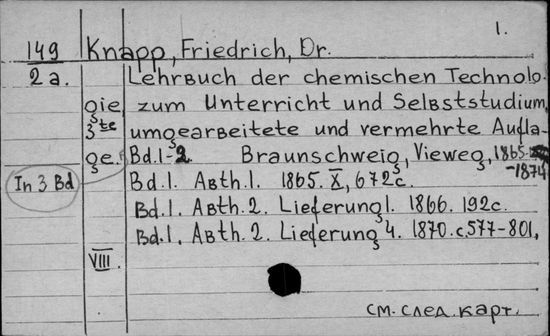 1.
149 Knapp, Friedrich, Dr.
2 a. Lehrbuch der chemischen Technolo-
gie, zum Unterricht und Selbststudium,
3te umgearbeitete und vermehrte Aufla-
ge. Bd.1-2 Braunschweig, Vieweg, 1865-
-1874
In 3 Bd Bd.1. Abth.1. 1865. X, 672c.
Bd.1. Abth.2. Lieferung 1. 1866. 192c.
Bd.1. Abth.2. Lieferung 4. 1870. c.577-801,
VIII.
см. след. карт.